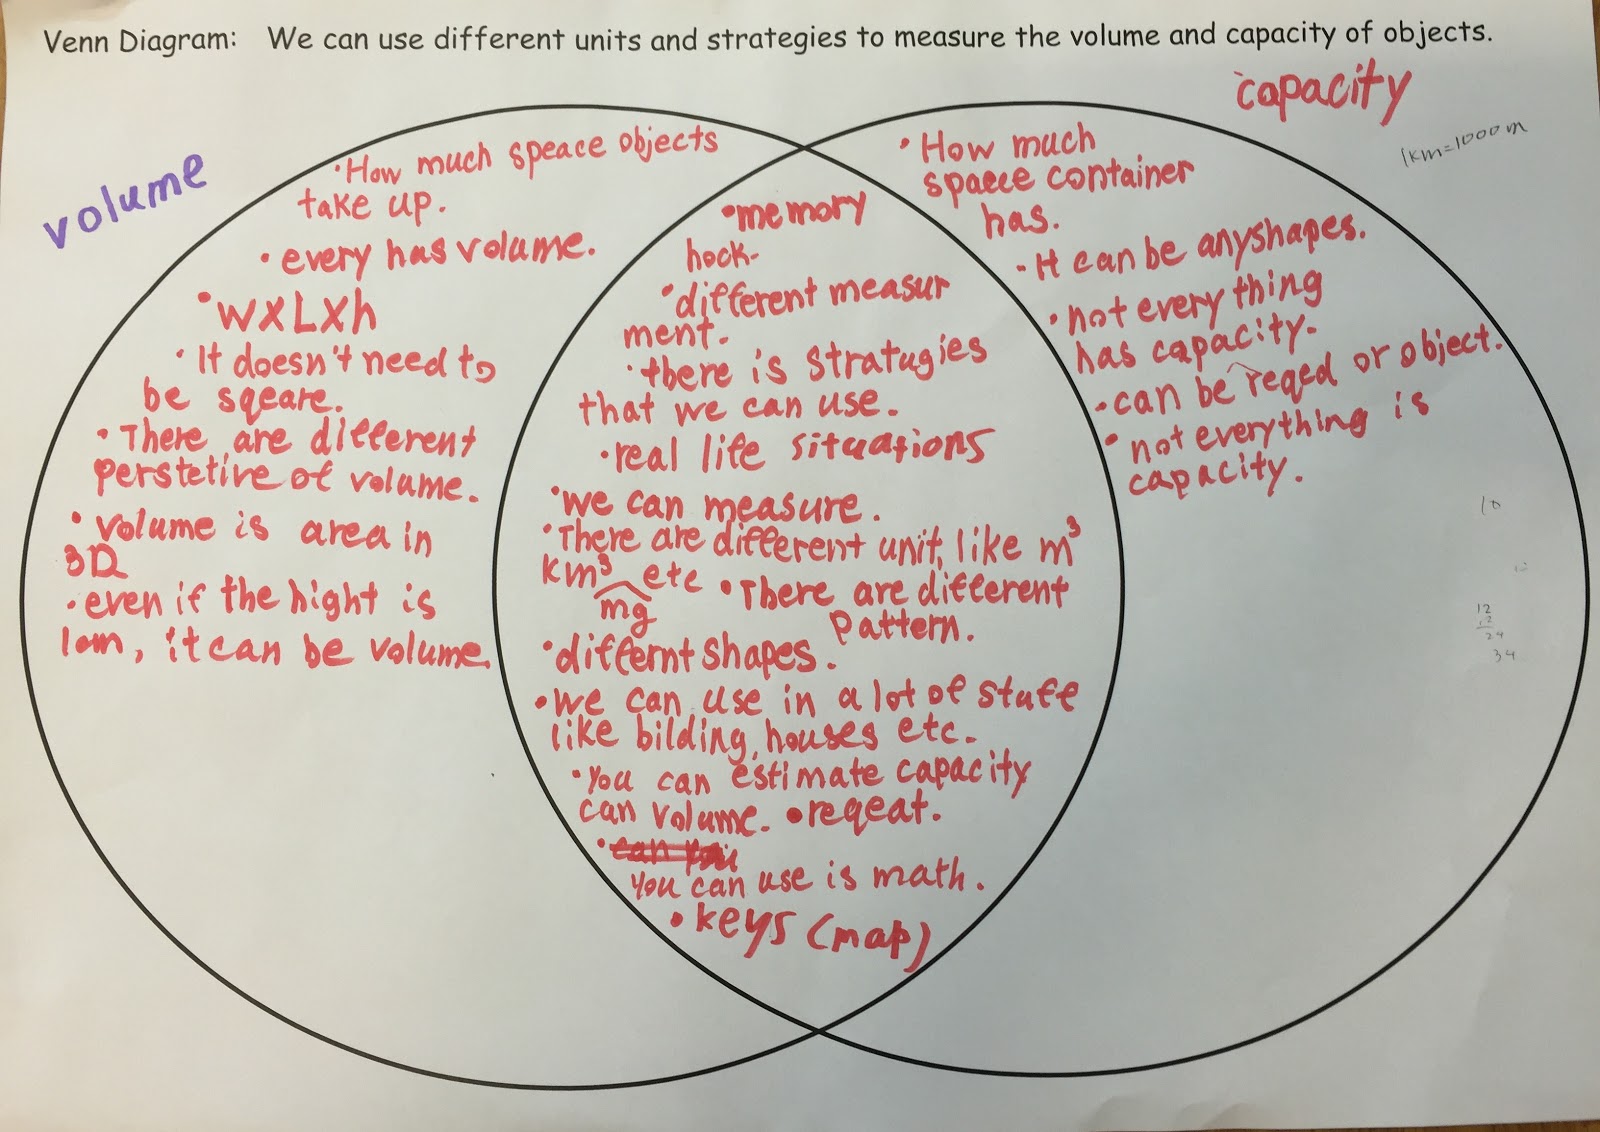 Venn Diagram: We can use different units and strategies to measure the volume and capacity of objects.
volume
• How much speace objects
take up.
• every has volume.
• WXLXh
• It doesn't need to
be sqeare.
• There are different
perstetive of volume.
• Volume is area in
3D
• even if the hight is
1cm, it can be volume.
• memory
hock-
• different measur
ment.
• there is stratugies
that we can use.
• real life situations
• we can measure.
• There are different unit, like m³
km³ etc
mg
• There are different
pattern.
• differnt shapes.
• we can use in a lot of stuff
like bilding, houses etc.
• You can estimate capacity
can volume. • reqeat.
• can you
You can use is math.
• keys (map)
capacity
1km=1000m
• How much
spaece container
has.
• It can be anyshapes.
• not every thing
has capacity.
• can be reqed or object.
• not everything is
capacity.
10
12
12
24
34